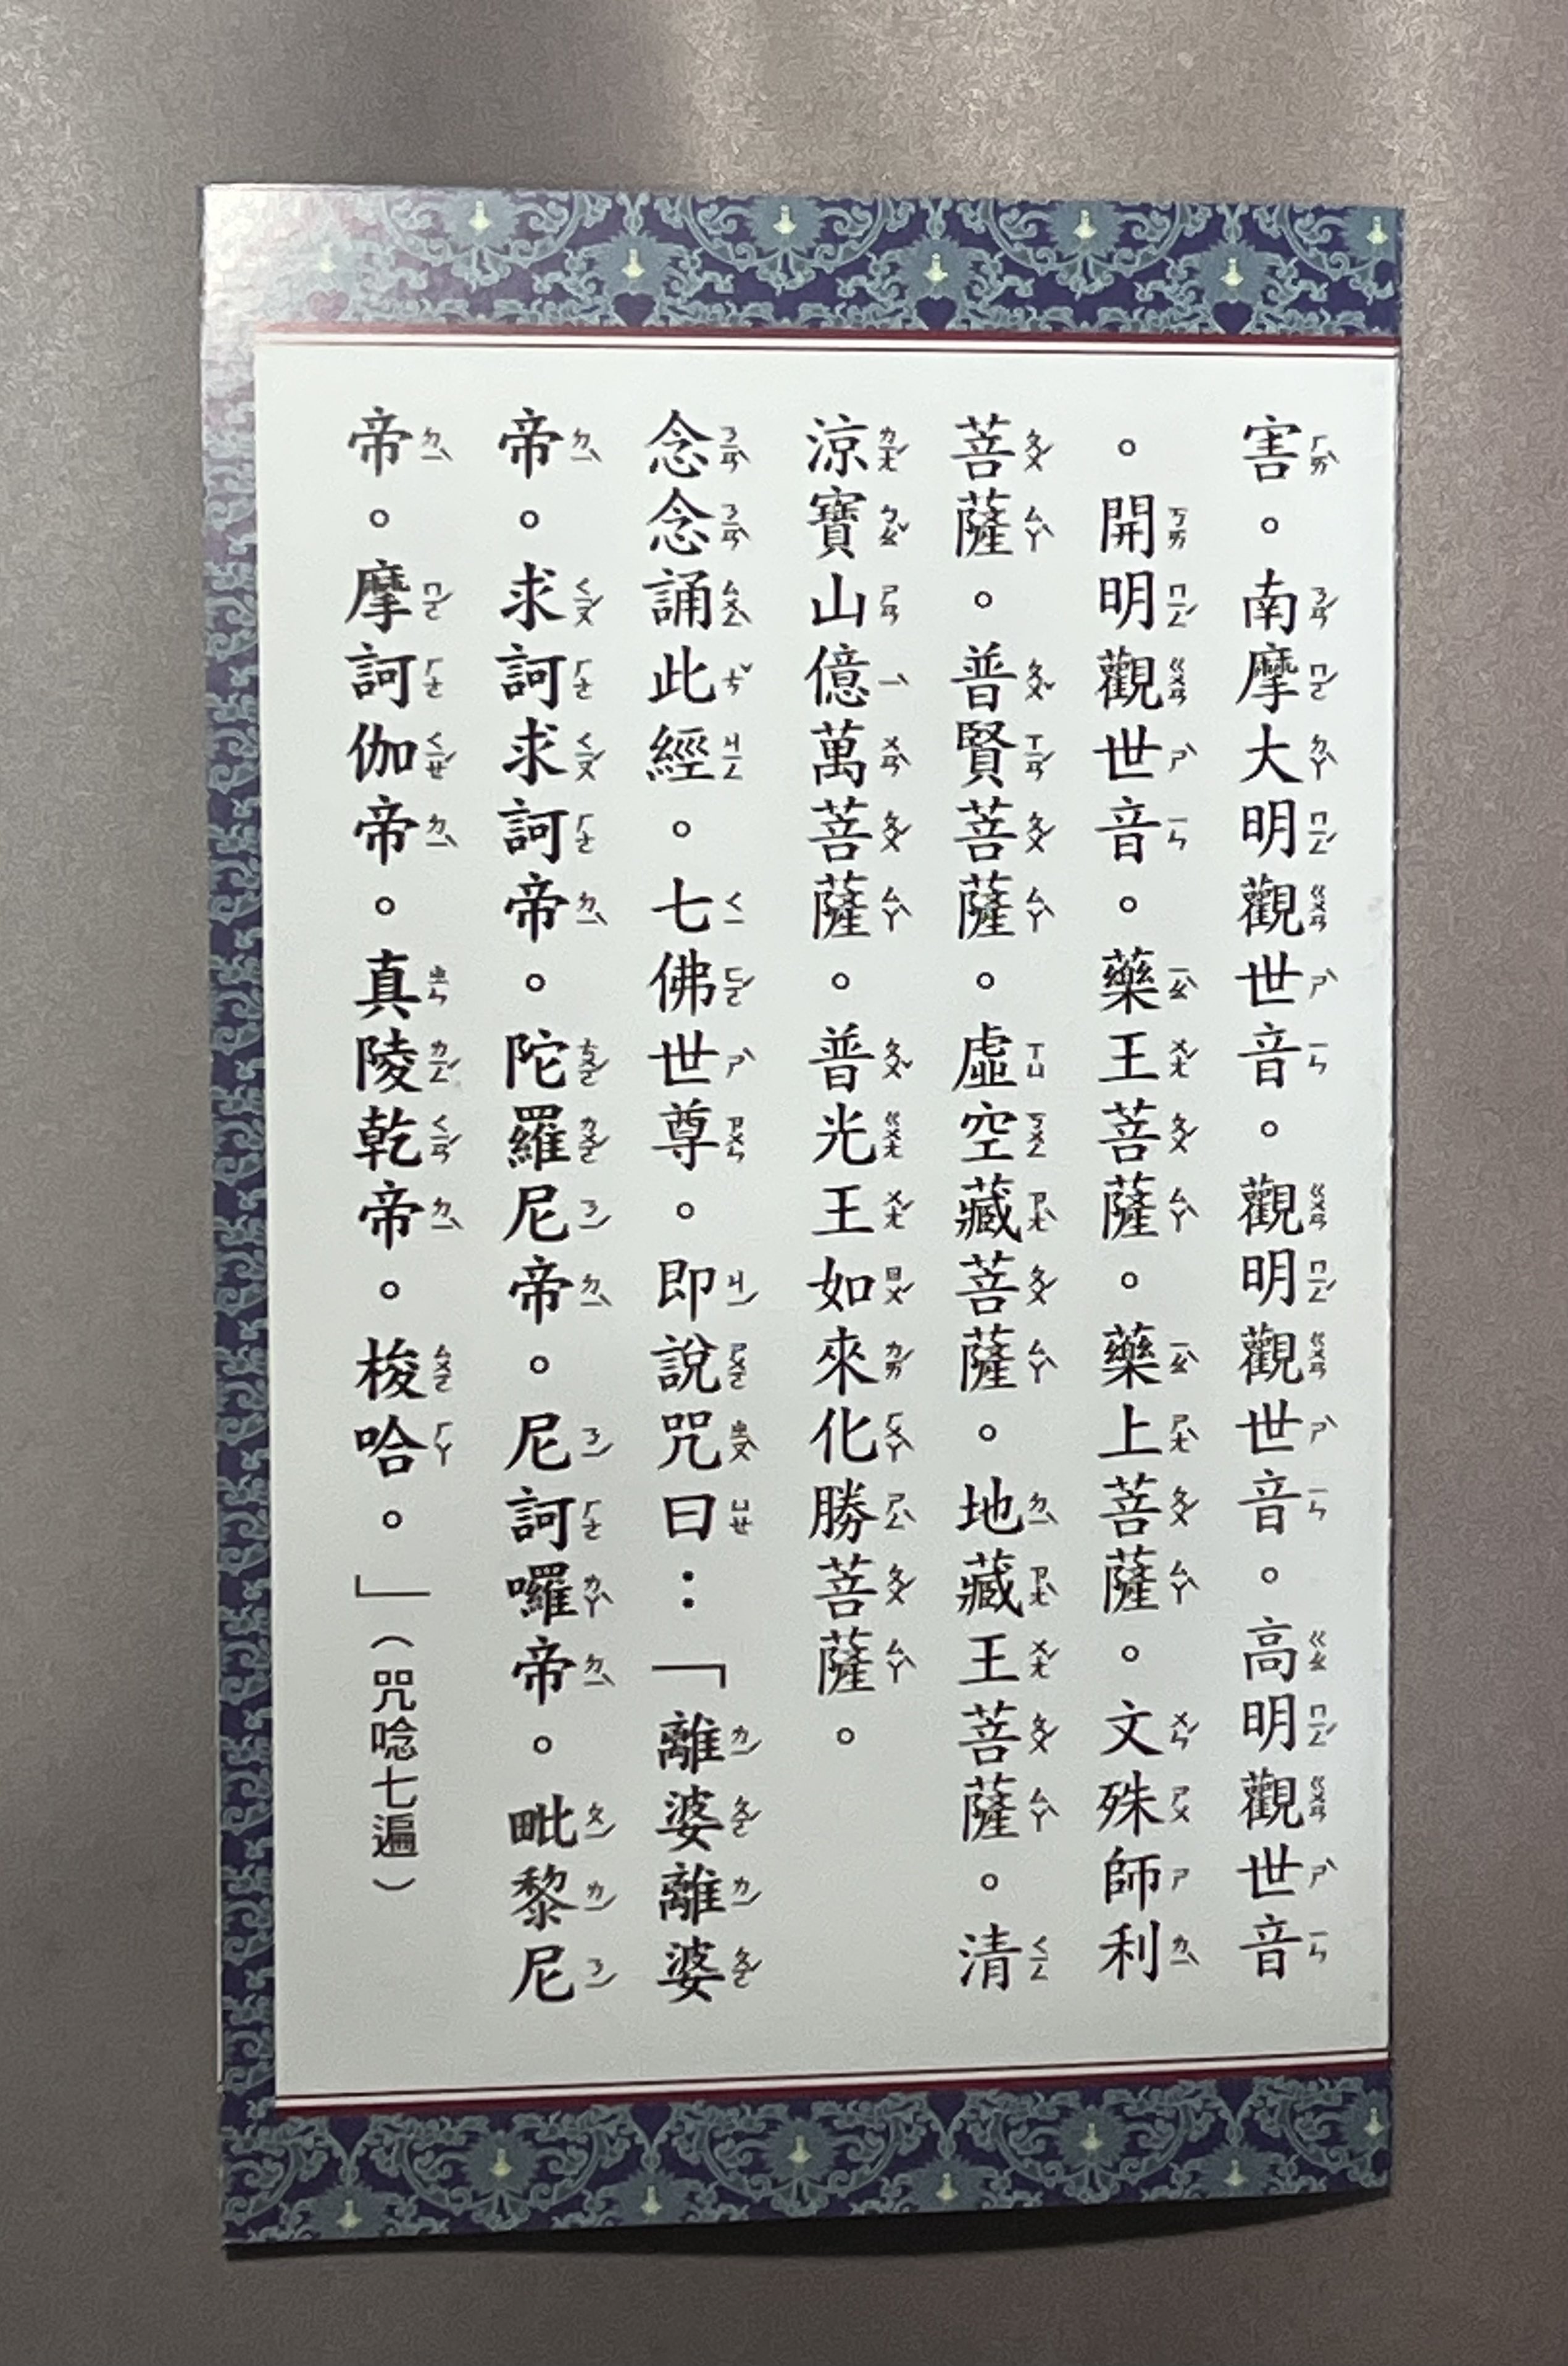 害。南摩大明觀世音。觀明觀世音。高明觀世音
。開明觀世音。藥王菩薩。藥上菩薩。文殊師利
菩薩。普賢菩薩。虛空藏菩薩。地藏王菩薩。清
涼寶山億萬菩薩。普光王如來化勝菩薩。
念念誦此經。七佛世尊。即說咒曰：「離婆離婆
帝。求訶求訶帝。陀羅尼帝。尼訶囉帝。毗黎尼
帝。摩訶伽帝。真陵乾帝。梭哈。」（咒唸七遍）